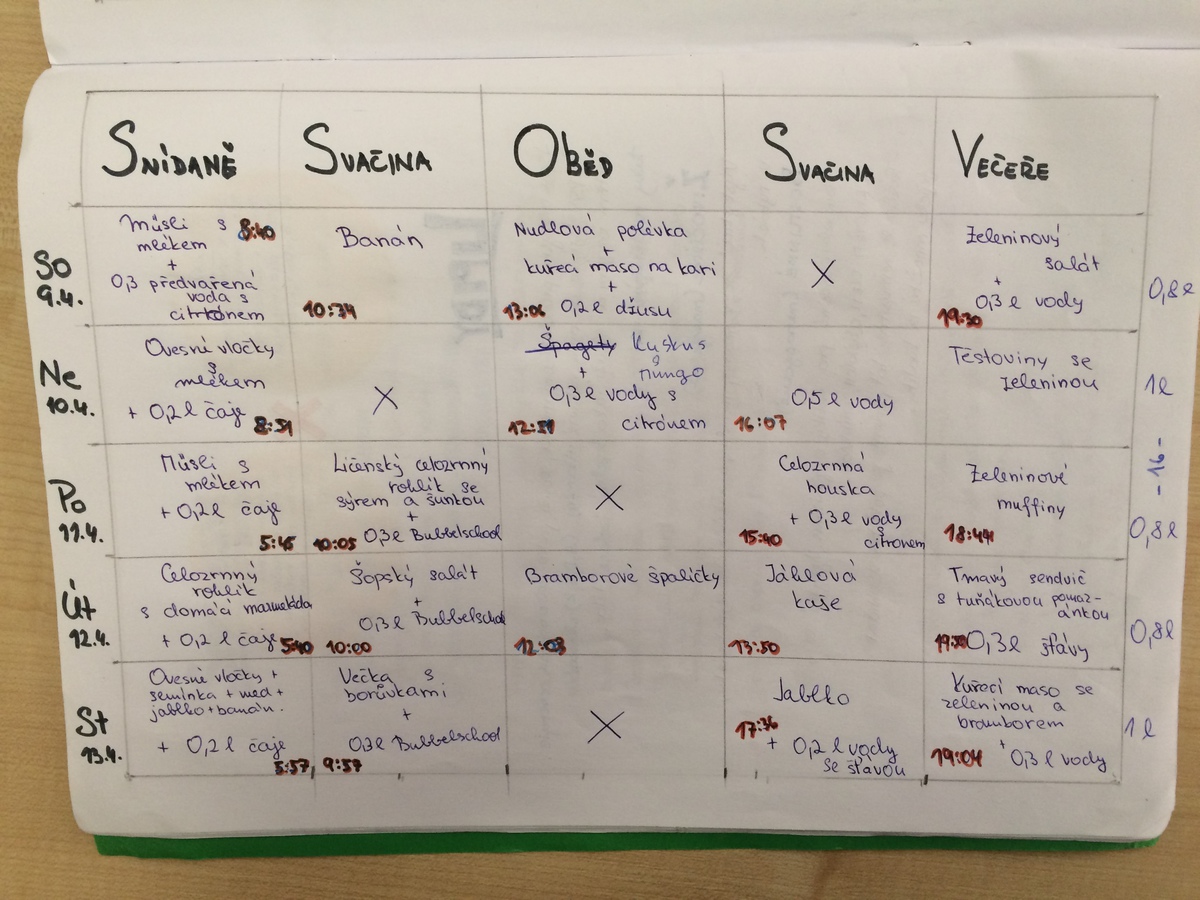 Snídaně Svačina Oběd Svačina Večeře
So
9.4.
Müsli s 8:40
mlékem
+
0,3 předvařená
voda s
citrónem
Banán
10:34
Nudlová polévka
+
kuřecí maso na kari
+
13:06 0,2 l džusu
X
Zeleninový
salát
+
0,3 l vody
19:30
0,8 l
Ne
10.4.
Ovesné vločky
s
mlékem
+ 0,2 l čaje
8:51
X
Špagety Kuskus
s
+ mungo
0,3 l vody s
12:51 citrónem
0,5 l vody
16:07
Těstoviny se
zeleninou
1 l
Po
11.4.
Müsli s
mlékem
+ 0,2 l čaje
5:45
celozrnný
rohlík se
sýrem a šunkou
+
10:05 0,3 l Bubbelschool
X
Celozrnná
houska
+ 0,3 l vody
s
15:40 citronem
Zeleninové
muffiny
18:44
-16-
0,8 l
Út
12.4.
Celozrnný
rohlík
s domácí marmeláda
+ 0,2 l čaje 5:40
Šopský salát
+
0,3 l Bubbelschool
10:00
Bramborové špalíčky
12:03
Jáhlová
kaše
13:50
Tmavý sendvič
s tuňákovou pomaz-
ánkou
0,3 l šťávy
0,8 l
St
13.4.
Ovesné vločky +
semínka + med +
jablko + banán.
+ 0,2 l čaje
5:57
Večka s
borůvkami
+
0,3 l Bubbelschool
9:57
X
Jablko
17:36
+ 0,2 l vody
se šťávou
Kuřecí maso se
zeleninou a
bramborem
+
19:04 0,3 l vody
1 l